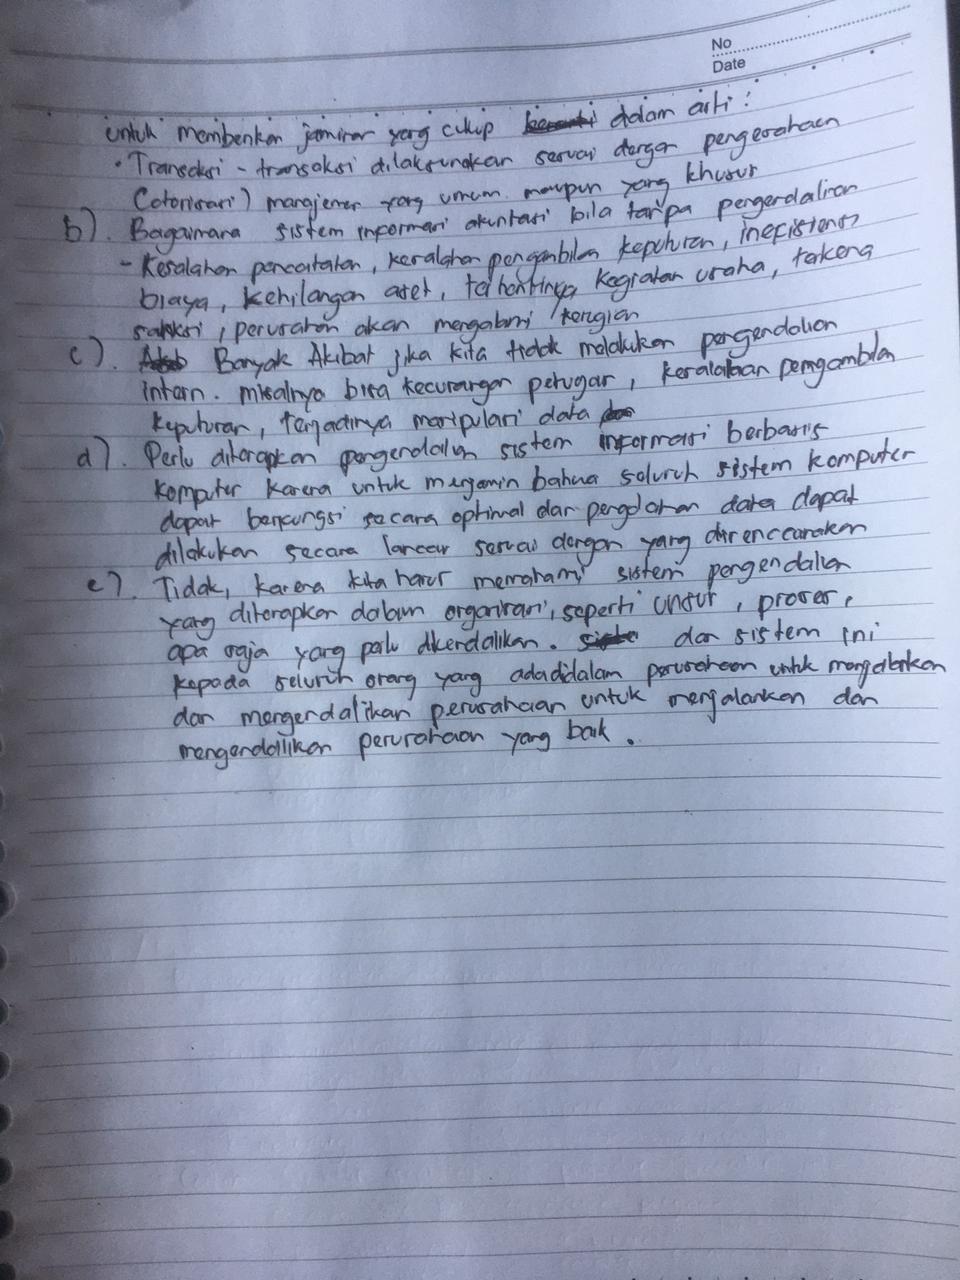 No
Date
untuk memberikan jaminan yang cukup dalam arti :
• Transaksi - transaksi dilaksanakan sesuai dengan pengesahaan
(otorisasi) manajemen yang umum maupun yang khusus
b). Bagaimana sistem informasi akuntasi bila tanpa pengendalian
- Kesalahan pencatatan, kesalahan pengambilan keputusan, inefistensi
biaya, kehilangan aset, terhentinya kegiatan usaha, terkena
sakksi, perusahan akan mengalami kerugian
c). Banyak Akibat jika kita tidak melakukan pengendalian
intern. misalnya bisa kecurangan petugas, kesalahan pengambilan
keputusan, terjadinya manipulasi data
d). Perlu diterapkan pengendalian sistem informasi berbasis
komputer karena untuk menjamin bahwa seluruh sistem komputer
dapat berfungsi secara optimal dan pengolahan data dapat
dilakukan secara lancar sesuai dengan yang direncanakan
e). Tidak, karena kita harus memahami sistem pengendalian
yang diterapkan dalam organisasi, seperti unsur, proses,
apa saja yang perlu dikendalikan. dan sistem ini
kepada seluruh orang yang ada didalam perusahaan untuk menjalankan
dan mengendalikan perusahaan untuk menjalankan dan
mengendalikan perusahaan yang baik.